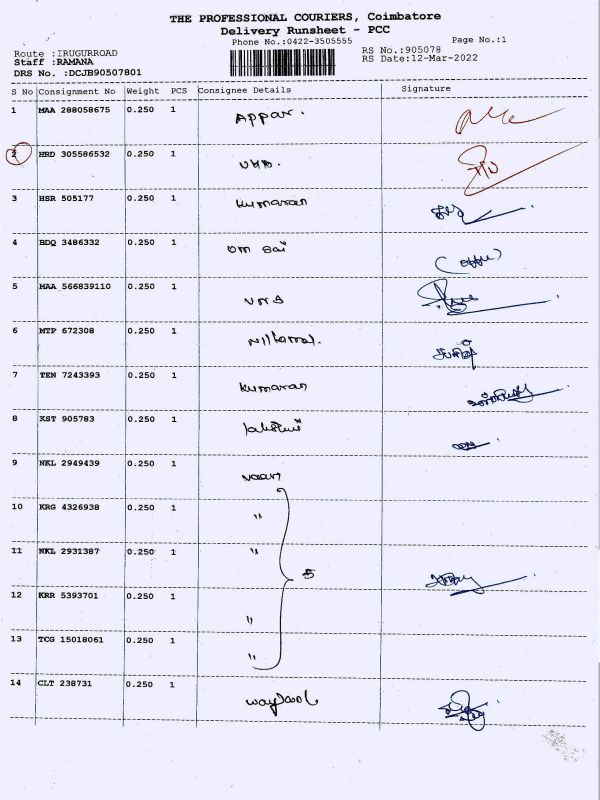 THE PROFESSIONAL COURIERS, Coimbatore
Delivery Runsheet - PCC
Phone No.:0422-3505555
Page No.:1
Route :IRUGURROAD
RS No.:905078
Staff :RAMANA
RS Date:12-Mar-2022
DRS No. :DCJB90507801
S No Consignment No Weight PCS Consignee Details Signature
1 MAA 288058675 0.250 1 Appar.
2 HRD 305586532 0.250 1
3 HSR 505177 0.250 1 Kumaran
4 BDQ 3486332 0.250 1 om sai
5 MAA 566839110 0.250 1 VMS
6 MTP 672308 0.250 1
7 TEN 7243393 0.250 1 Kumaran
8 KST 905783 0.250 1
9 NKL 2949439 0.250 1
10 KRG 4326938 0.250 1 "
11 NKL 2931387 0.250 1 " 5
12 KRR 5393701 0.250 1 "
13 TCG 15018061 0.250 1 "
14 CLT 238731 0.250 1